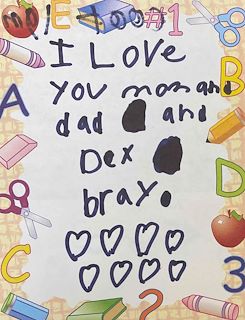 #1
I Love
you mom and
dad and
Dex
bray.
A
B
C
D
E
?
3